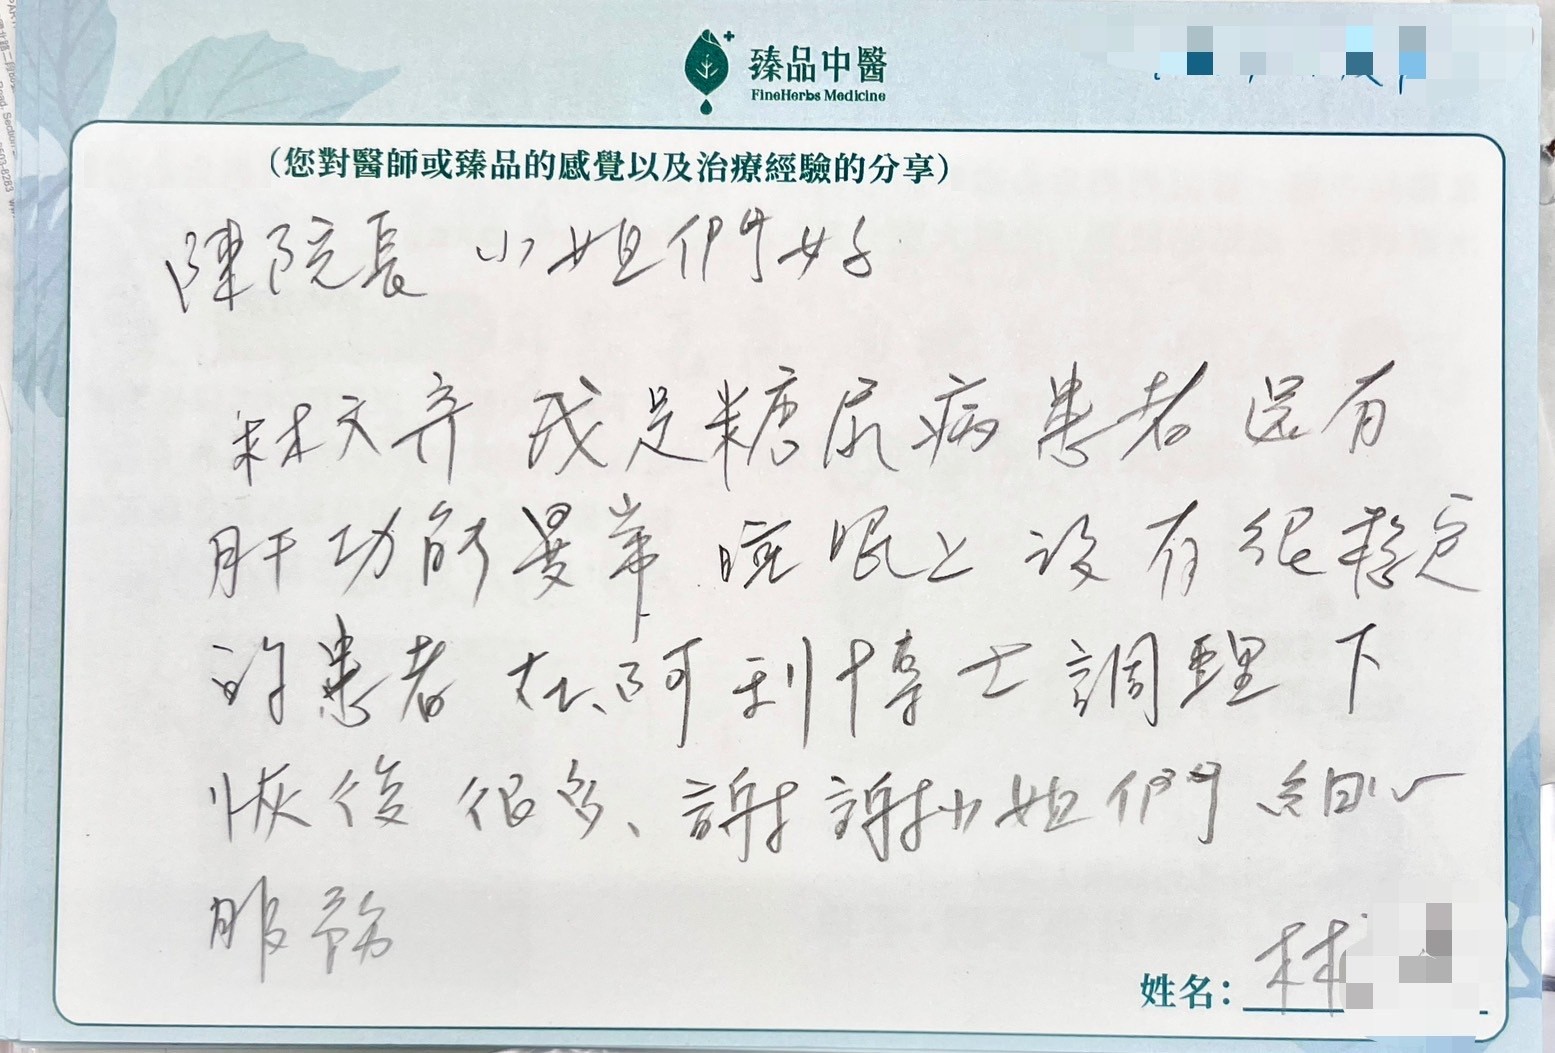 臻品中醫
FineHerbs Medicine
(您對醫師或臻品的感覺以及治療經驗的分享)
陳院長 小姐們好
林文齊 我是糖尿病患者 還有
肝功能異常 睡眠上 沒有很穩定
的患者 在、阿利博士調理下
恢復很多、謝謝小姐們細心
服務
姓名: 林